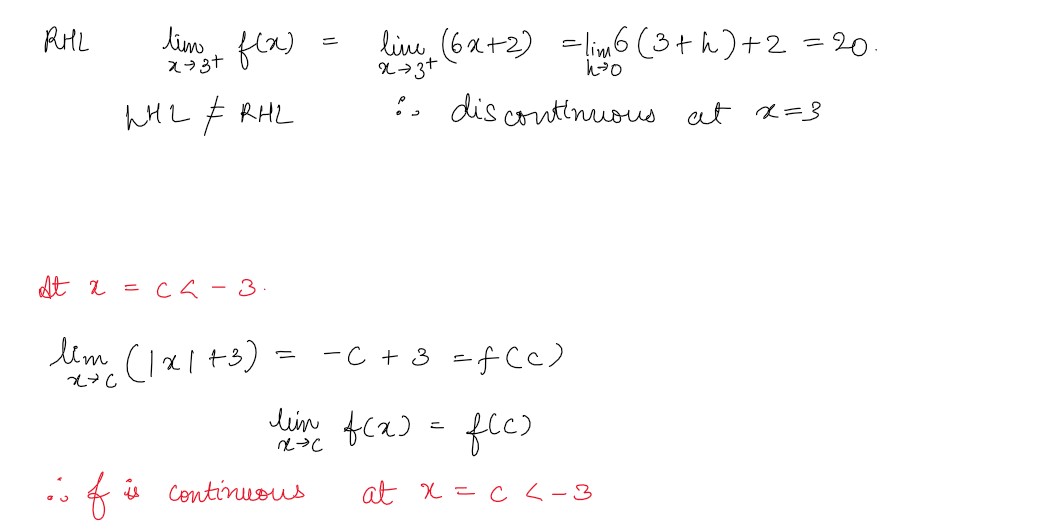 RHL lim x→3+ f(x) = lim x→3+ (6x+2) = lim h→0 6(3+h)+2 = 20.
LHL ≠ RHL ∴ discontinuous at x=3
At x = c < -3.
lim x→c (|x|+3) = -c + 3 = f(c)
lim x→c f(x) = f(c)
∴ f is continuous at x = c < -3